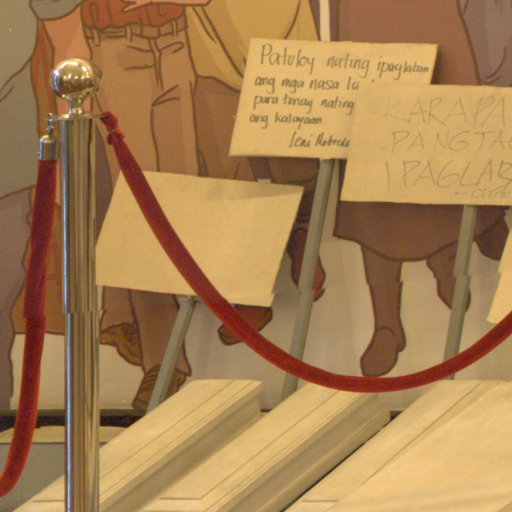 Patuloy nating ipaglaban
ang mga nasa la
para tunay nating
ang kalayaan.
Leni Robredo
KARAPA
PANGTAO
IPAGLAB